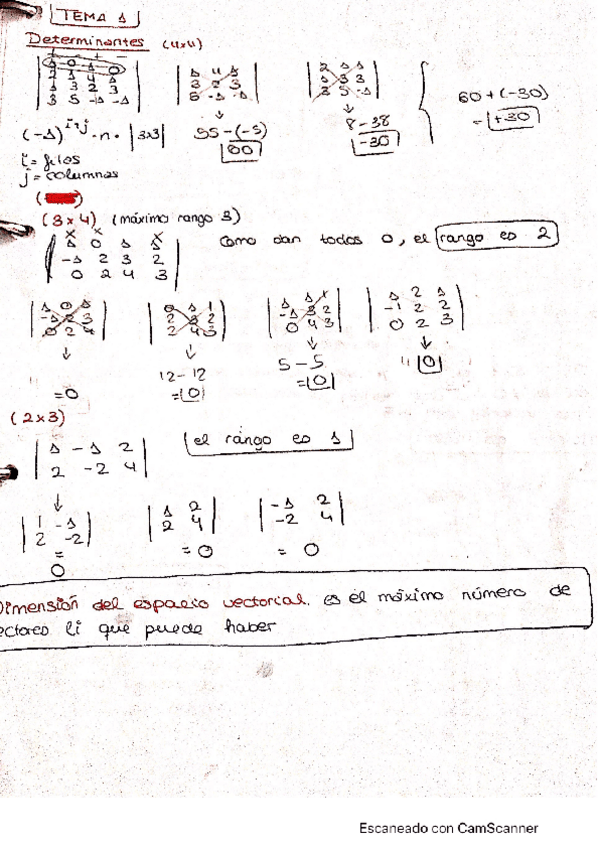 TEMA 1
Determinantes (4x4)
2 1 4 1
1 3 2 3
3 5 -1 -1
55-(-5)
60
8-38
-30
60+(-30)
= +30
(-1)^i+j · n · |3x3|
i= filas
j= columnas
(3x4) (máximo rango 3)
1 0 1 1
-1 2 3 2
0 2 4 3
Como dan todos 0, el rango es 2
1 0 1
-1 2 3
0 2 4
0 1 1
2 3 2
2 4 3
1 1 1
-1 3 2
0 4 3
-1 2 2
0 2 3
=0
12-12
=0
5-5
=0
" 0
(2x3)
1 -1 2
2 -2 4
el rango es 1
1 -1
2 -2
=
0
1 2
2 4
= 0
-1 2
-2 4
= 0
Dimensión del espacio vectorial. es el máximo número de
ectores li que puede haber
Escaneado con CamScanner